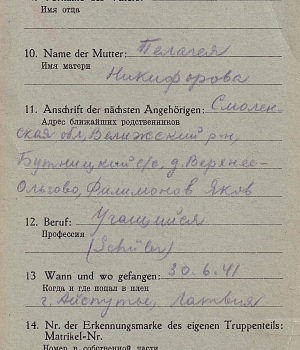 Имя отца
10. Name der Mutter: Пелагея
Имя матери
Никифорова
11. Anschrift der nächsten Angehörigen: Смолен-
Адрес ближайших родственников
ская обл, Велижский р-н,
Бутницкий с/с, д. Верхнее-
Ольгово, Филимонов Яков
12. Beruf: Учащийся
Профессия
(Schüler)
13 Wann und wo gefangen: 30.6.41
Когда и где попал в плен
г. Айспутье, Латвия
14. Nr. der Erkennungsmarke des eigenen Truppenteils:
Matrikel-Nr.
Номер в собственной части